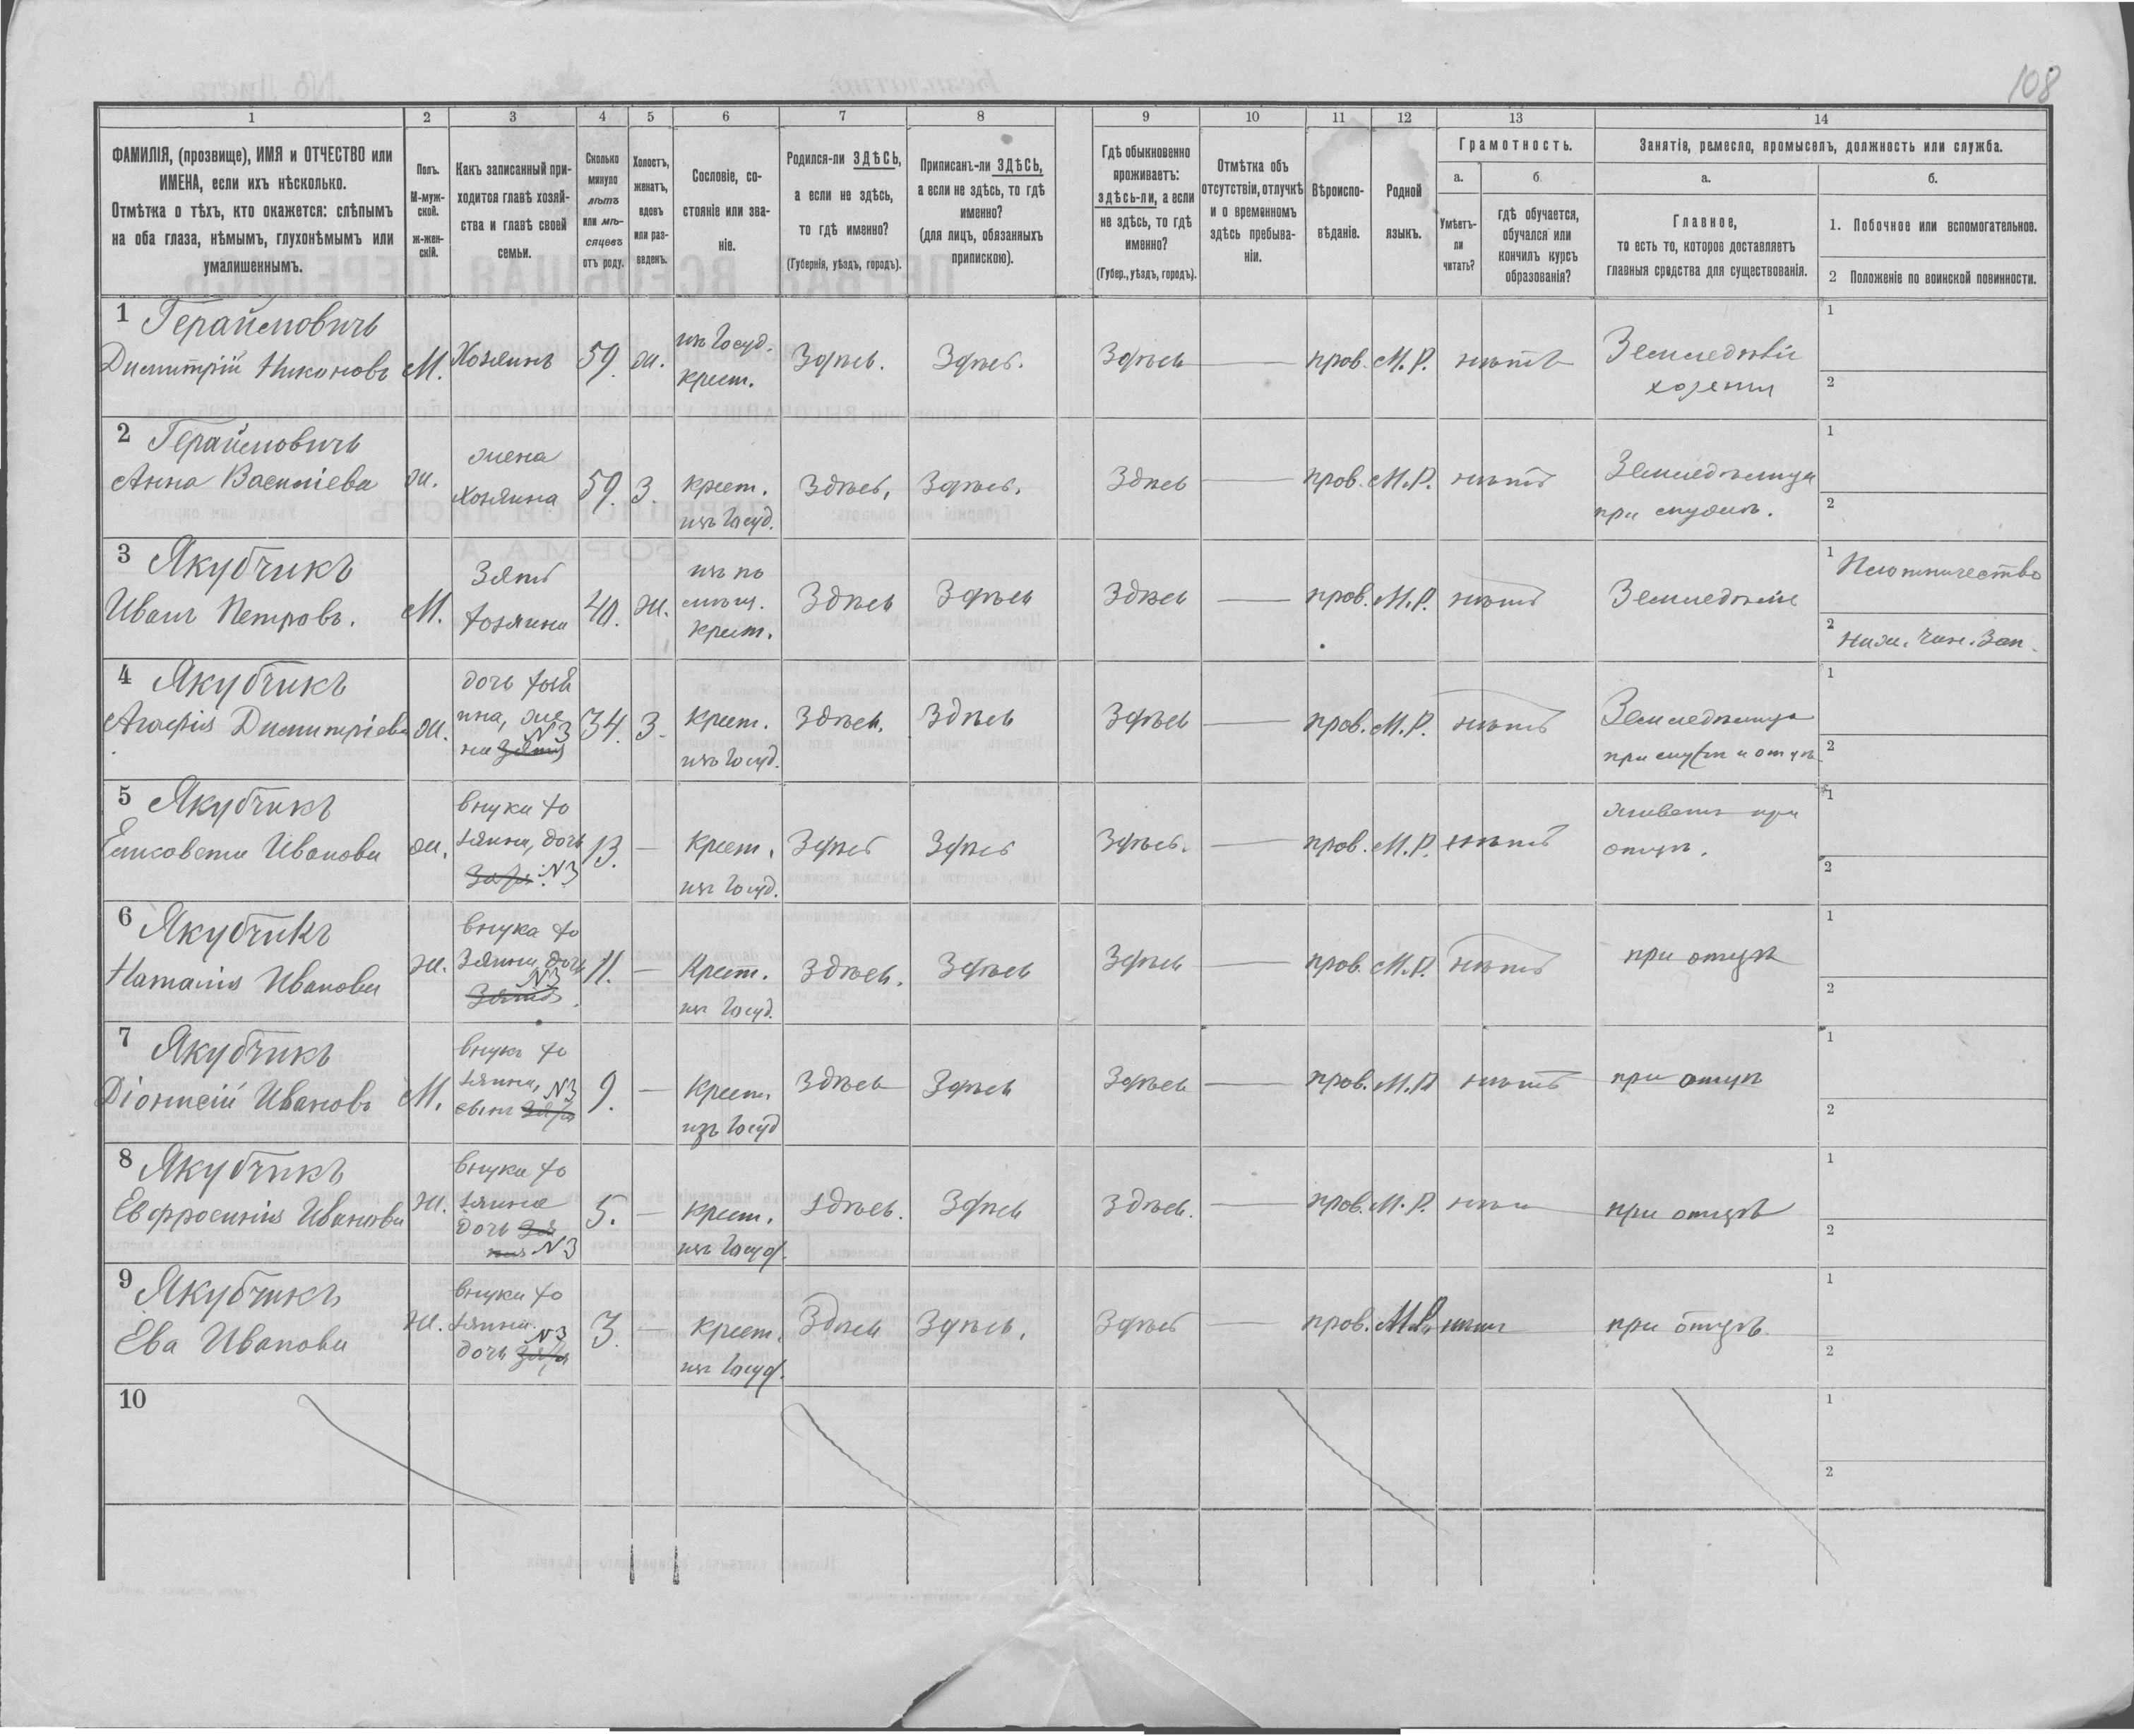 108
1 2 3 4 5 6 7 8 9 10 11 12 13 14
ФАМИЛІЯ, (прозвище), ИМЯ и ОТЧЕСТВО или
ИМЕНА, если ихъ нѣсколько.
Отмѣтка о тѣхъ, кто окажется: слѣпымъ
на оба глаза, нѣмымъ, глухонѣмымъ или
умалишеннымъ.
Полъ.
М-муж-
ской.
ж-жен-
скій.
Какъ записанный при-
ходится главѣ хозяй-
ства и главѣ своей
семьи.
Сколько
минуло
лѣтъ
или мѣ-
сяцевъ
отъ роду.
Холостъ,
женатъ,
вдовъ
или раз-
веденъ.
Сословіе, со-
стояніе или зва-
ніе.
Родился-ли ЗДѢСЬ,
а если не здѣсь,
то гдѣ именно?
(Губернія, уѣздъ, городъ).
Приписанъ-ли ЗДѢСЬ,
а если не здѣсь, то гдѣ
именно?
(для лицъ, обязанныхъ
припискою).
Гдѣ обыкновенно
проживаетъ:
здѣсь-ли, а если
не здѣсь, то гдѣ
именно?
(Губер., уѣздъ, городъ).
Отмѣтка объ
отсутствіи, отлучкѣ
и о временномъ
здѣсь пребыва-
ніи.
Вѣроиспо-
вѣданіе.
Родной
языкъ.
Грамотность.
а.
Умѣетъ-
ли
читать?
б.
гдѣ обучается,
обучался или
кончилъ курсъ
образованія?
Занятіе, ремесло, промыселъ, должность или служба.
а.
Главное,
то есть то, которое доставляетъ
главныя средства для существованія.
б.
1. Побочное или вспомогательное.
2 Положеніе по воинской повинности.
1 Герайсмовичъ
Димитрій Никоновъ М. Хозяинъ 59. ж. изъ Госуд. крест. Здѣсь. Здѣсь. Здѣсь — прав. М.Р. нѣтъ Земледѣліе
хозяинъ
1
2
2 Герайсмовичъ
Анна Василіева ж. жена хозяина 59. З. крест. изъ Госуд. Здѣсь. Здѣсь. Здѣсь — прав. М.Р. нѣтъ Земледѣлица
при мужѣ.
1
2
3 Якубчикъ
Иванъ Петровъ. М. Зять хозяина 40. ж. изъ помѣщ. крест. Здѣсь Здѣсь Здѣсь — прав. М.Р. нѣтъ Земледѣліе
1 Плотничество
2 Ниж. Чин. Зап.
4 Якубчикъ
Агафія Димитріева ж. дочь хозяина, жена N3 34. З. крест. изъ Госуд. Здѣсь. Здѣсь Здѣсь — прав. М.Р. нѣтъ Земледѣлица
при мужѣ и отцѣ
1
2
5 Якубчикъ
Елисовета Иванова ж. внука хозяина, дочь N3 13. — крест. изъ Госуд. Здѣсь Здѣсь Здѣсь. — прав. М.Р. нѣтъ живетъ при
отцѣ.
1
2
6 Якубчикъ
Наталія Иванова ж. внука хозяина, дочь N3 11. — Крест. изъ Госуд. Здѣсь. Здѣсь Здѣсь — прав. М.Р. нѣтъ при отцѣ
1
2
7 Якубчикъ
Діонисій Ивановъ М. внукъ хозяина, сынъ N3 9. — крест. изъ Госуд Здѣсь Здѣсь Здѣсь — прав. М.Р. нѣтъ при отцѣ
1
2
8 Якубчикъ
Евфросинія Иванова ж. внука хозяина дочь N3 5. — крест. изъ Госуд. Здѣсь. Здѣсь Здѣсь. — прав. М.Р. нѣтъ при отцѣ
1
2
9 Якубчикъ
Ева Иванова ж. внука хозяина. дочь N3 3. — крест. изъ Госуд. Здѣсь Здѣсь. Здѣсь — прав. М.Р. нѣтъ при отцѣ
1
2
10
1
2